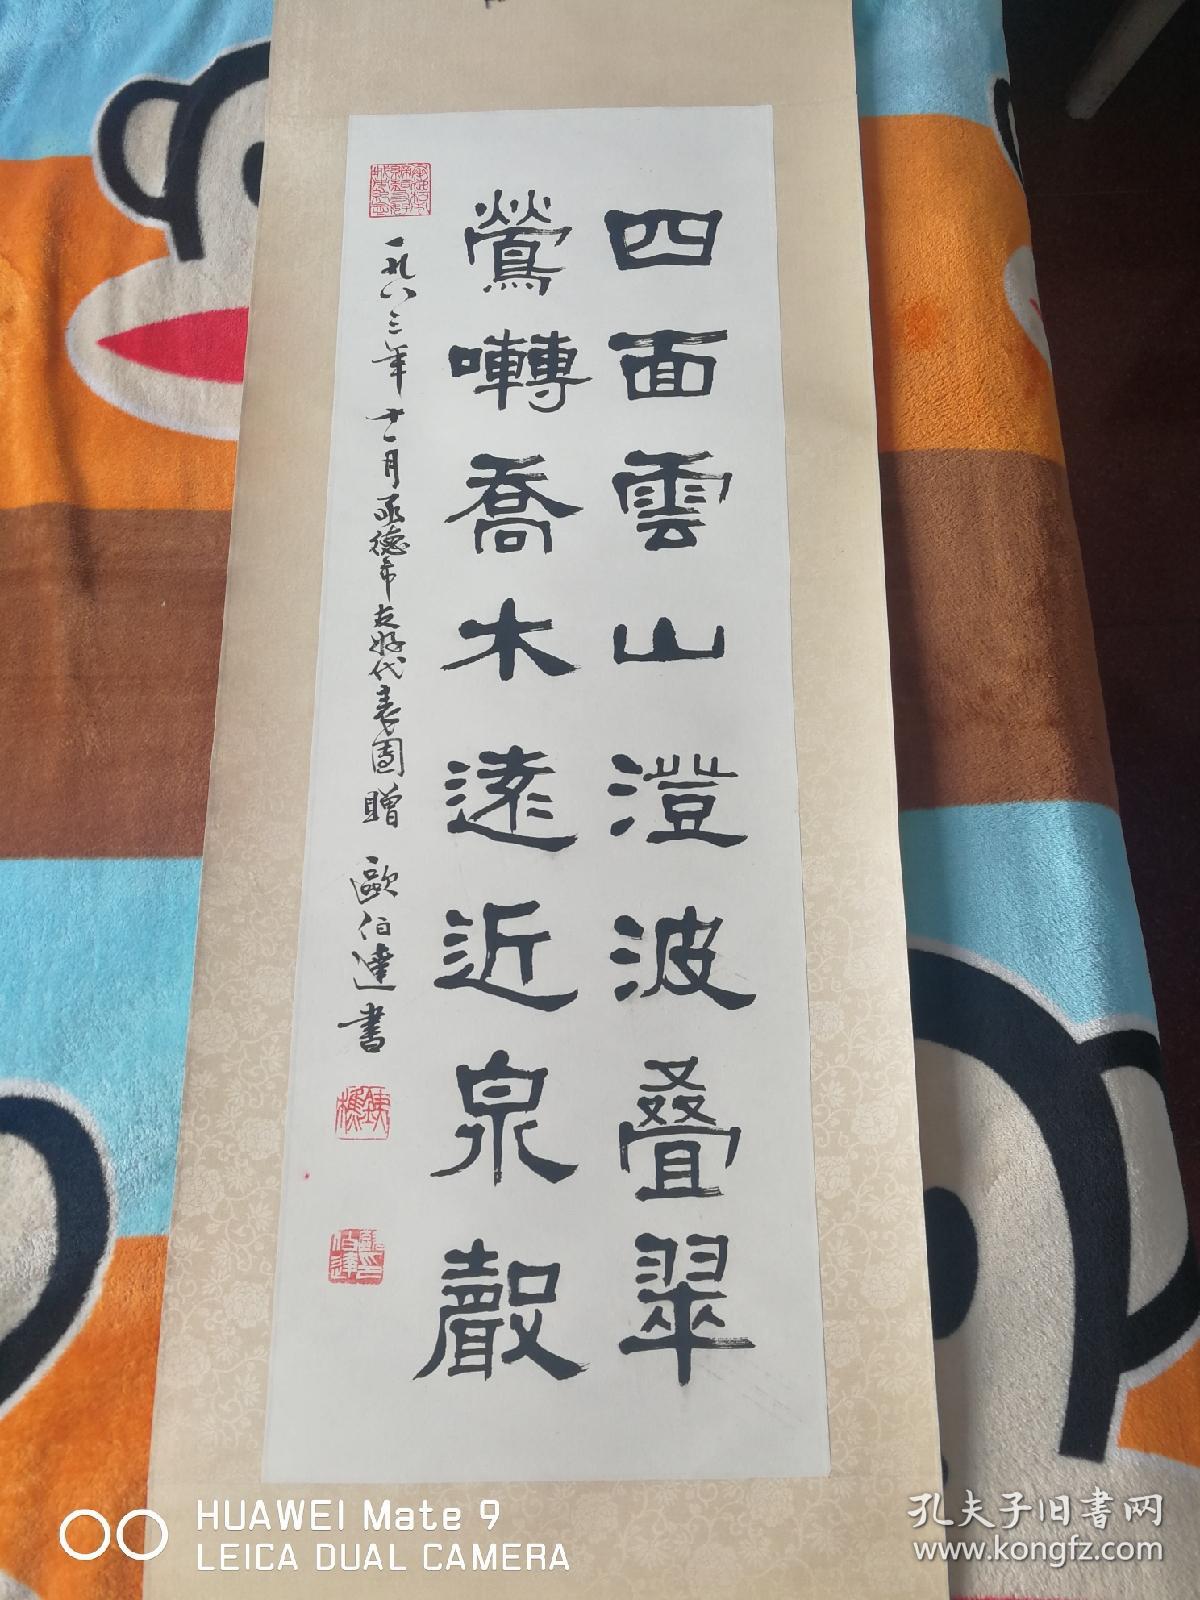 四面雲山澄波叠翠
鶯囀喬木遠近泉聲
一九八三年十一月承德市友好代表團贈 歐伯達書
HUAWEI Mate 9
LEICA DUAL CAMERA
孔夫子旧书网
www.kongfz.com